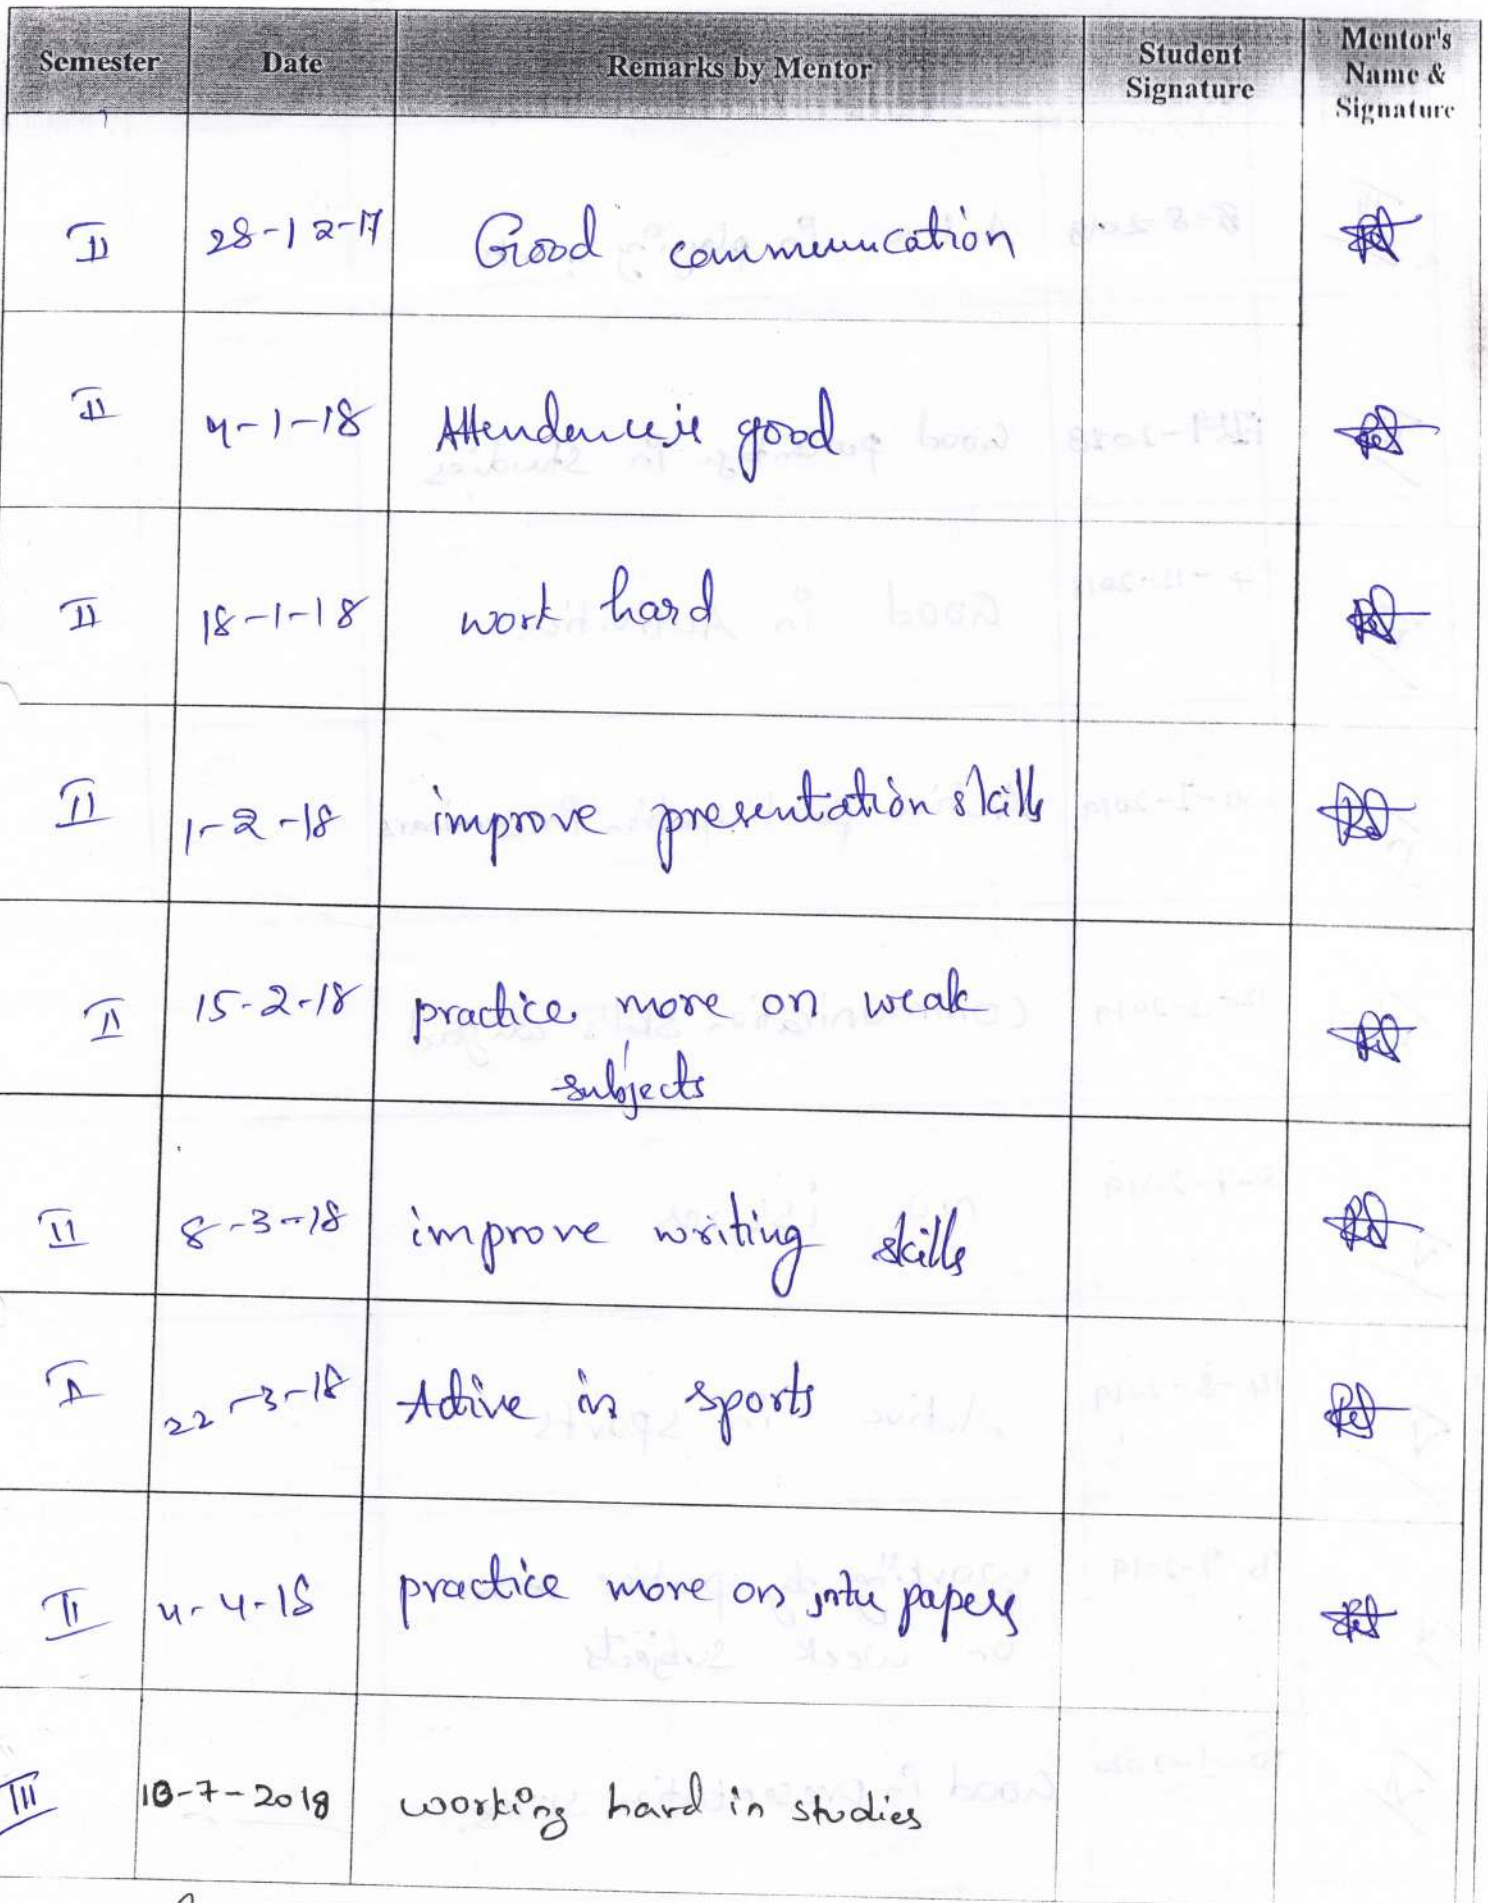 Semester Date Remarks by Mentor Student Signature Mentor's Name & Signature
II 28-12-17 Good communication
II 4-1-18 Attendence is good
II 18-1-18 work hard
II 1-2-18 improve presentation skills
II 15-2-18 practice more on weak
subjects
II 8-3-18 improve writing skills
II 22-3-18 Active in sports
II 4-4-18 practice more on jntu papers
III 10-7-2018 working hard in studies